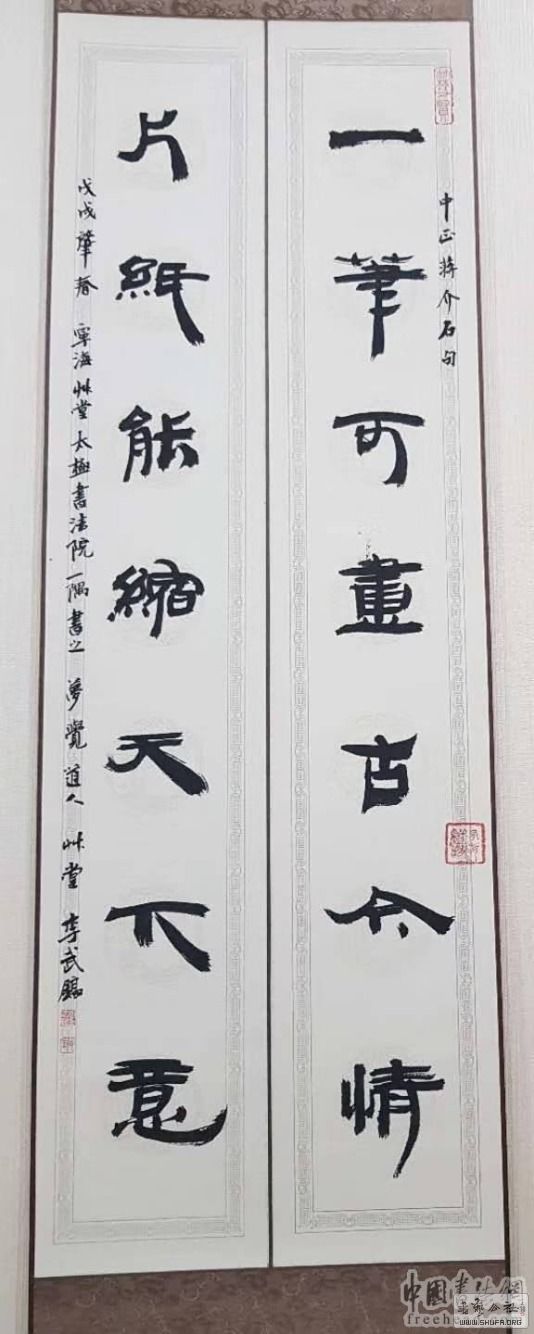 中正蔣介石句
一筆可畫古今情
片紙能縮天下意
戊戌肇春 寧海艸堂太極書法院一隅書之 夢覺道人 艸堂 李武
中國书法
freehe
书家公社
WWW.SHUFA.ORG